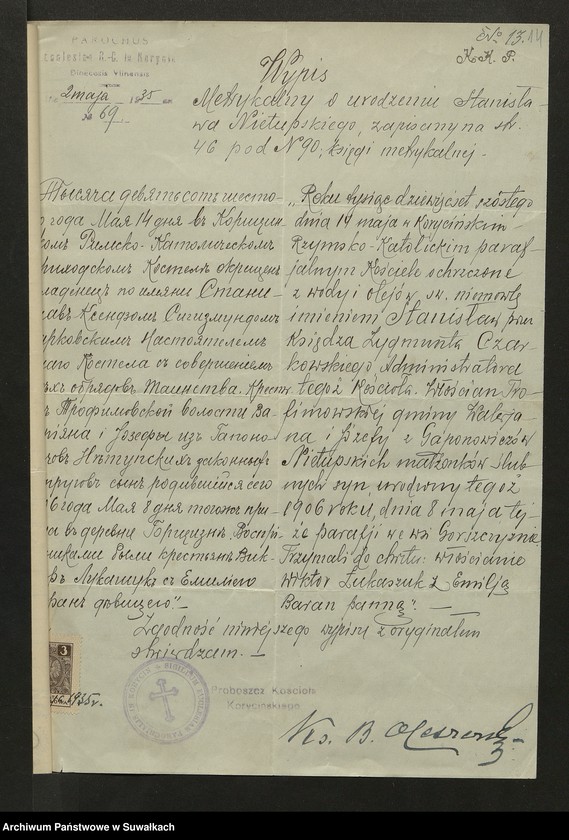 PAROCHUS
Ecclesiae R.-C. in Korycin
Dioecesis Vilnensis
2 maja 1935
№ 69
№ 13.14
K. K. P.
Wypis
Metrykalny o urodzeniu Stanisła-
wa Nietupskiego, zapisany na str.
46 pod N 90, księgi metrykalnej.-
Тысяча девятьсотъ шесто-
го года Мая 14 дня въ Корицин
комъ Римско-Католическомъ
риходскомъ Костелѣ окрещенъ
ладенецъ по имяни Стани-
лавъ Ксендзомъ Сигизмундомъ
арковскимъ Настоятелемъ
наго Костела съ совершеніемъ
ыхъ обрядовъ таинства. Крестн
ъ Трофимовской волости Ва-
тіяна и Іозефы изъ Гапоно-
човъ Нѣтупскихъ законныхъ
пруговъ сынъ родившійся сего
6 года Мая 8 дня тогожъ при-
да въ деревни Горщизнѣ. Воспрі-
никами были крестьянъ Вик-
ръ Лукашукъ съ Емиліею
Баранъ дѣвицею".-
„Roku tysiąc dziewięćset szóstego
dnia 14 maja w Korycińskim
Rzymsko-Katolickim paraf-
jalnym Kościele ochrzczone
z wody i olejów św. niemowlę
imieniem Stanisław przez
Księdza Zygmunta Czar-
kowskiego Administratora
tegoż Kościoła. Włościan Tro-
fimowskiej gminy Walerja-
na i Józefy z Gaponowiczów
Nietupskich małżonków ślub-
nych syn, urodzony tegoż
1906 roku, dnia 8 maja tej-
że parafji we wsi Gorszczyznie.
Trzymali do chrztu: włościanie
Wiktor Łukaszuk z Emilją
Baran panną". —
Zgodność niniejszego wypisu z oryginałem
stwierdzam. —
3
1935 r.
Proboszcz Kościoła
Korycińskiego
Ks. B.
Archiwum Państwowe w Suwałkach